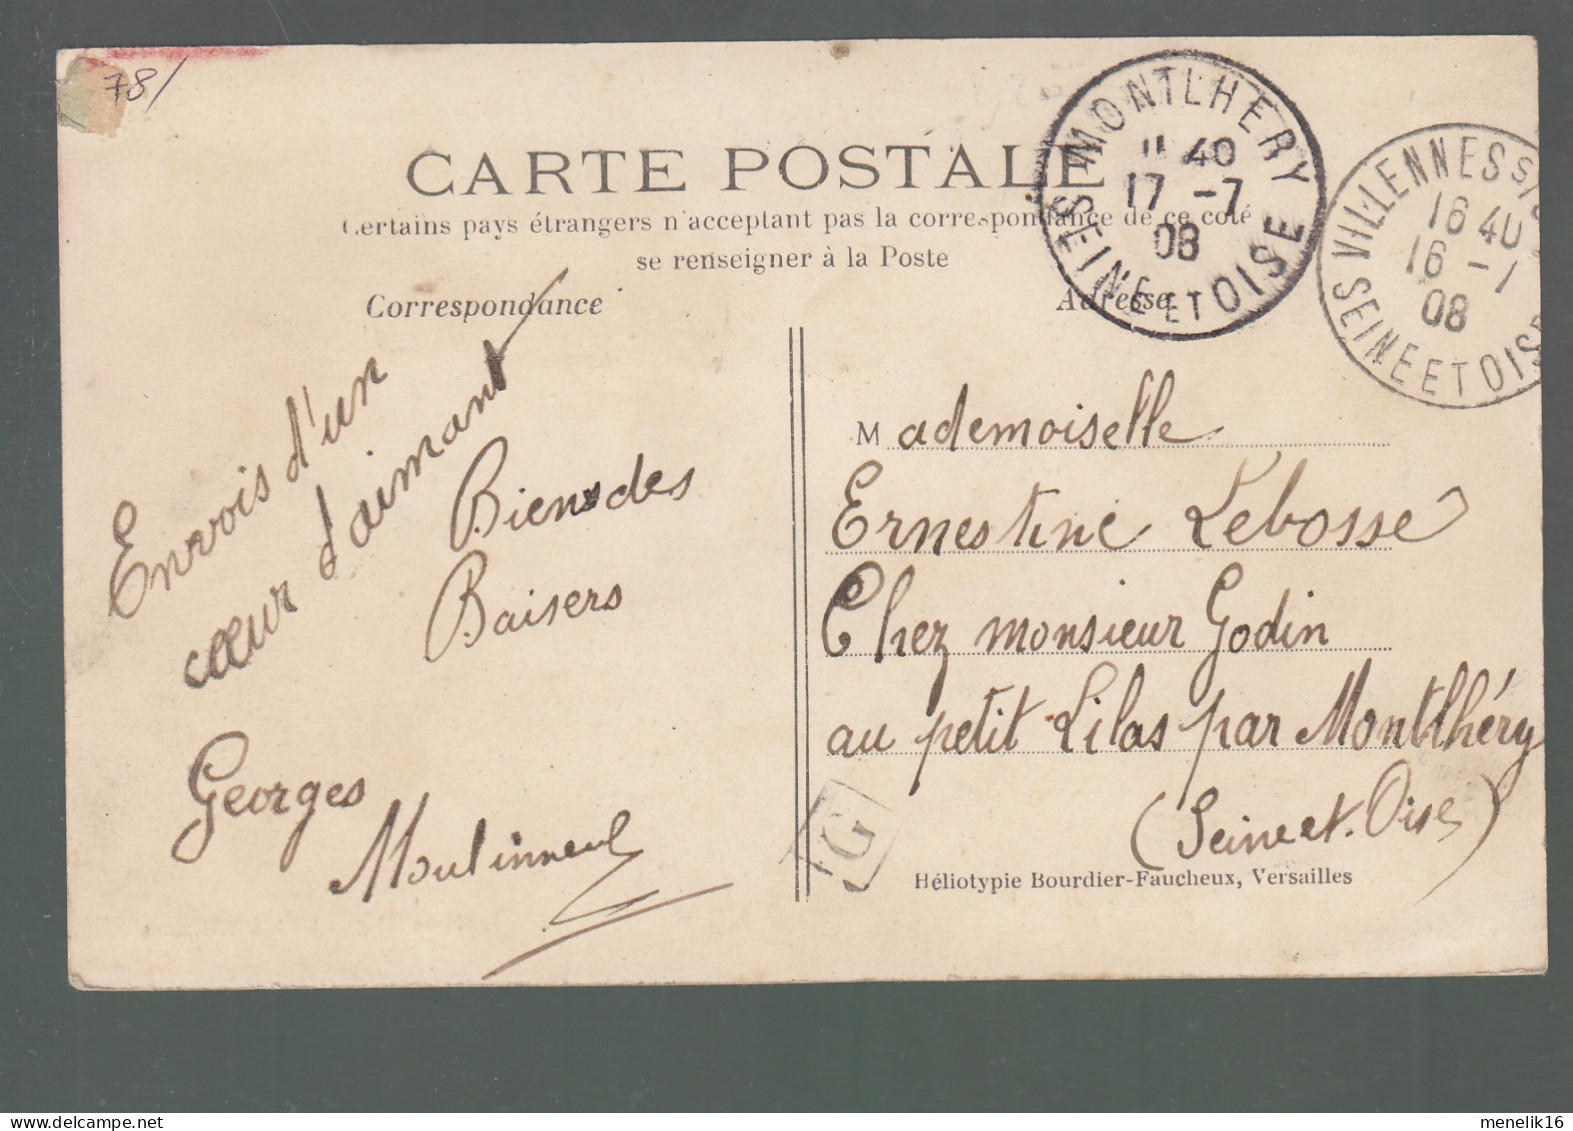 78/
CARTE POSTALE
Certains pays étrangers n'acceptent pas la correspondance de ce coté
se renseigner à la Poste
Correspondance
Adresse
MONTLHERY
11 40
17 -7
08
SEINE ET OISE
VILLENNES S/S
16 40
16 -7
08
SEINE ET OISE
Envois d'un
cœur d'aimant
Biens des
Baisers
Georges
Mademoiselle
Ernestine Lebosse
Chez monsieur Godin
au petit Lilas par Montlhéry
(Seine et. Oise)
G
Héliotypie Bourdier-Faucheux, Versailles
menelik16